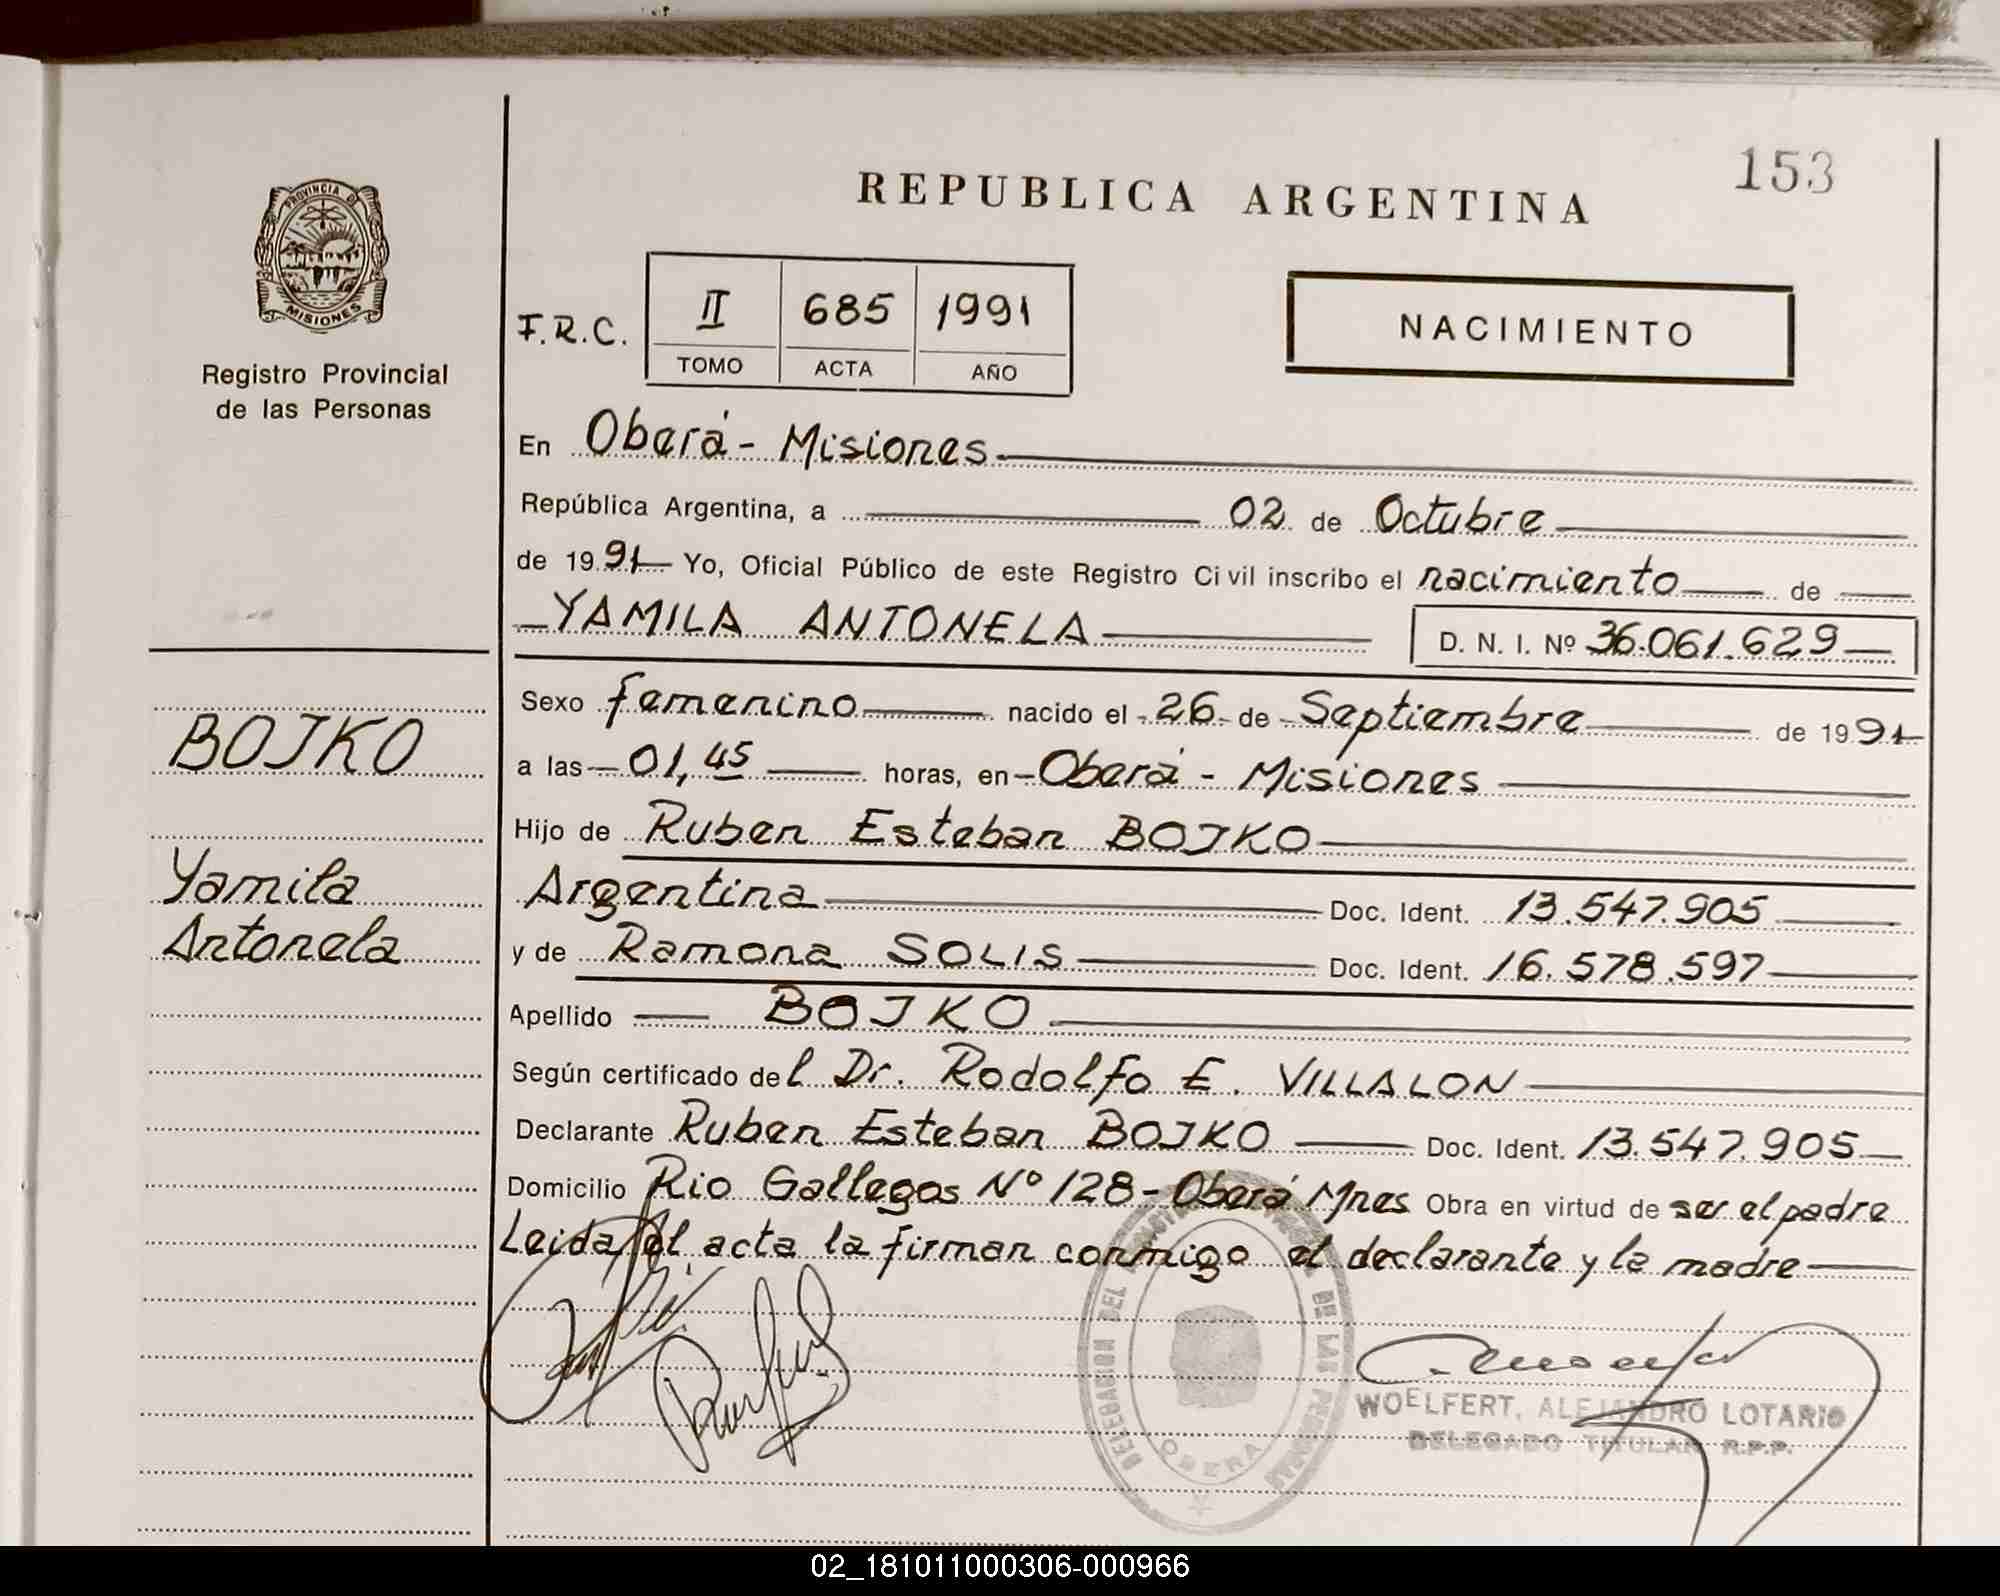 153
REPUBLICA ARGENTINA
PROVINCIA DE
MISIONES
Registro Provincial
de las Personas
F.R.C.
II 685 1991
TOMO ACTA AÑO
NACIMIENTO
En Oberá - Misiones
República Argentina, a 02 de Octubre
de 1991 Yo, Oficial Público de este Registro Civil inscribo el nacimiento de
YAMILA ANTONELA D. N. I. Nº 36.061.629
Sexo femenino nacido el 26 de Septiembre de 1991
a las 01,45 horas, en Oberá - Misiones
Hijo de Ruben Esteban BOJKO
Argentina Doc. Ident. 13.547.905
y de Ramona SOLIS Doc. Ident. 16.578.597
Apellido BOJKO
Según certificado del Dr. Rodolfo E. VILLALON
Declarante Ruben Esteban BOJKO Doc. Ident. 13.547.905
Domicilio Rio Gallegos Nº 128 - Oberá Mnes Obra en virtud de ser el padre
Leida el acta la firman conmigo el declarante y la madre
BOJKO
Yamila
Antonela
DELEGACION DEL DE LAS PERSONAS
OBERA
WOELFERT, ALEJANDRO LOTARIO
DELEGADO TITULAR R.P.P.
02_181011000306-000966